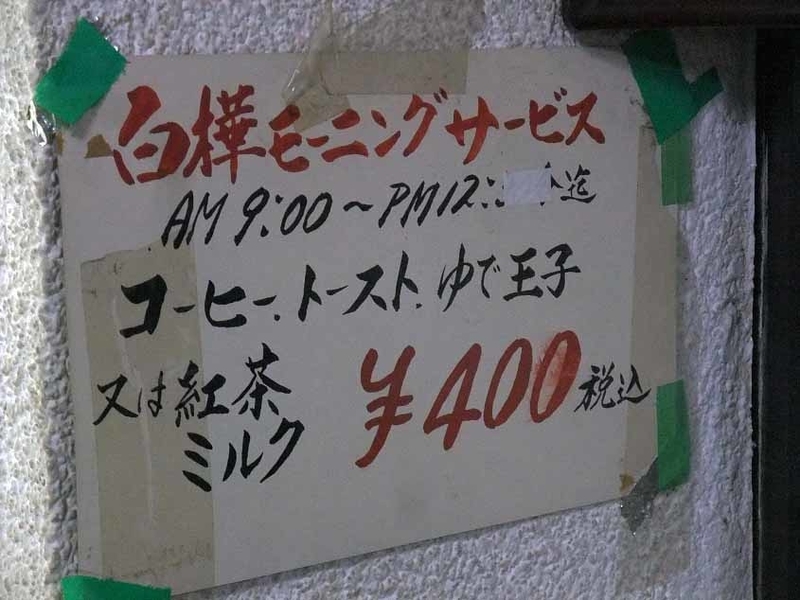 白樺モーニングサービス
AM 9:00〜PM12: 迄
コーヒー.トースト.ゆで王子
又は紅茶
ミルク
¥400税込